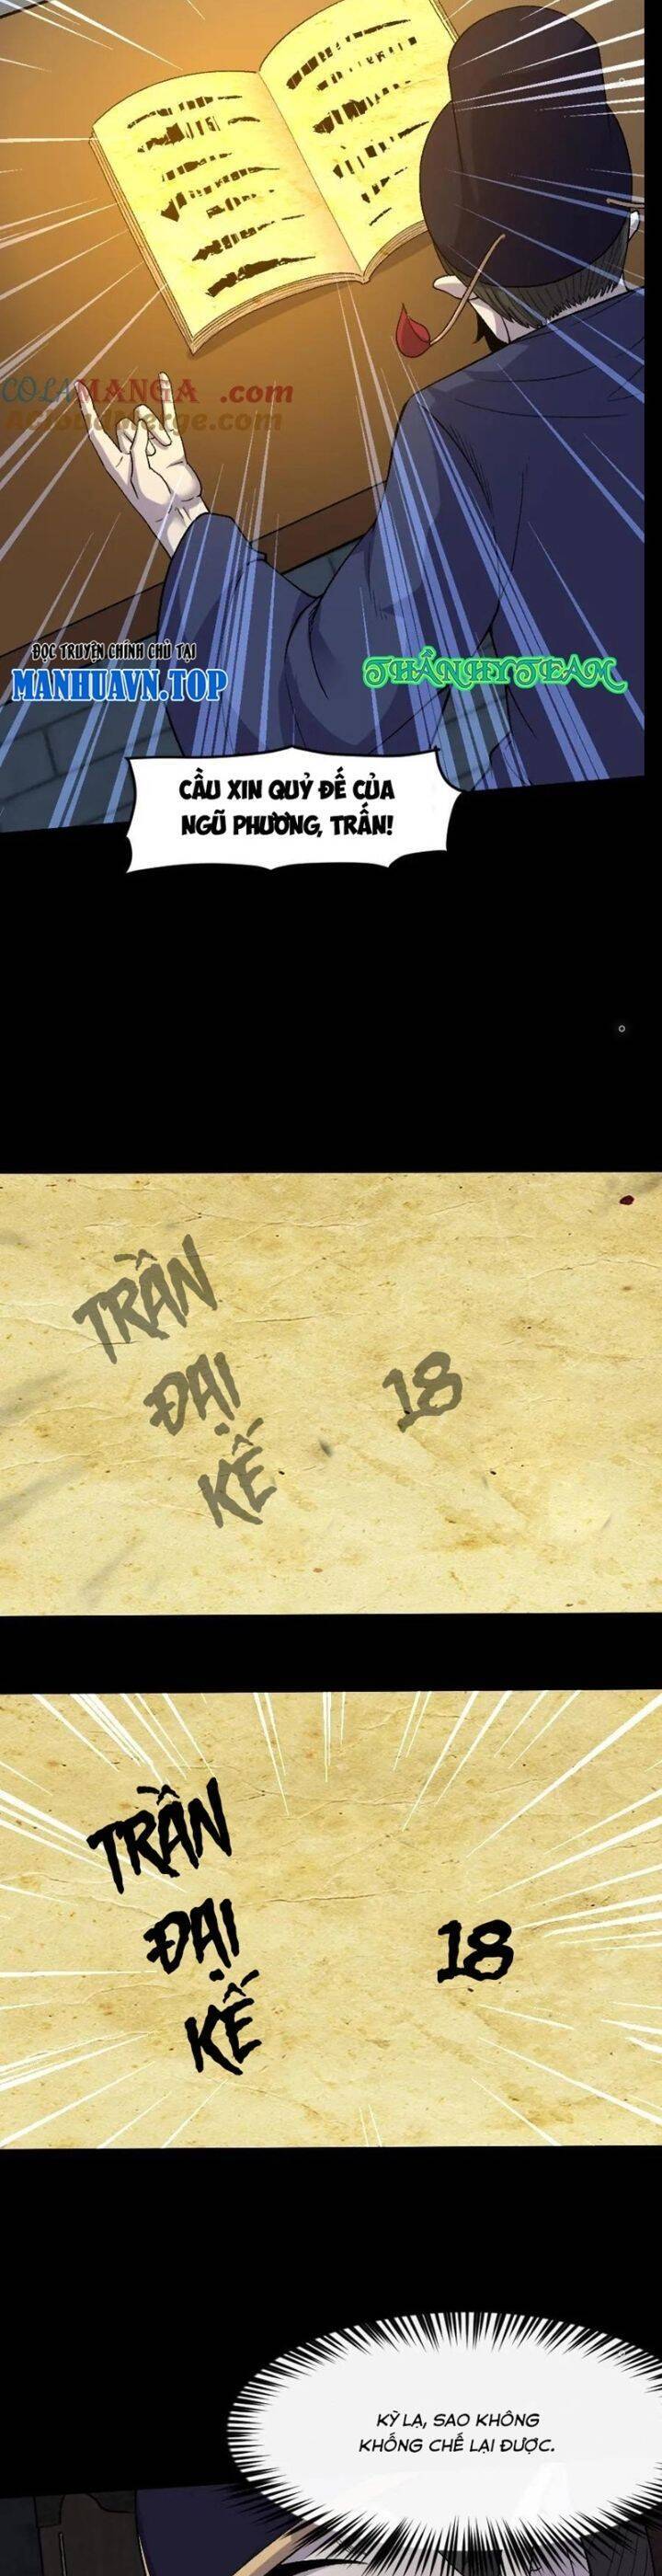 COLAMANGA.com
ACloudMerge.com
ĐỌC TRUYỆN CHÍNH CHỦ TẠI
MANHUAVN.TOP
THẦN HY TEAM
CẦU XIN QUỶ ĐẾ CỦA
NGŨ PHƯƠNG, TRẤN!
TRẦN
ĐẠI
KẾ
18
TRẦN
ĐẠI
KẾ
18
KỲ LẠ, SAO KHÔNG
KHỐNG CHẾ LẠI ĐƯỢC.